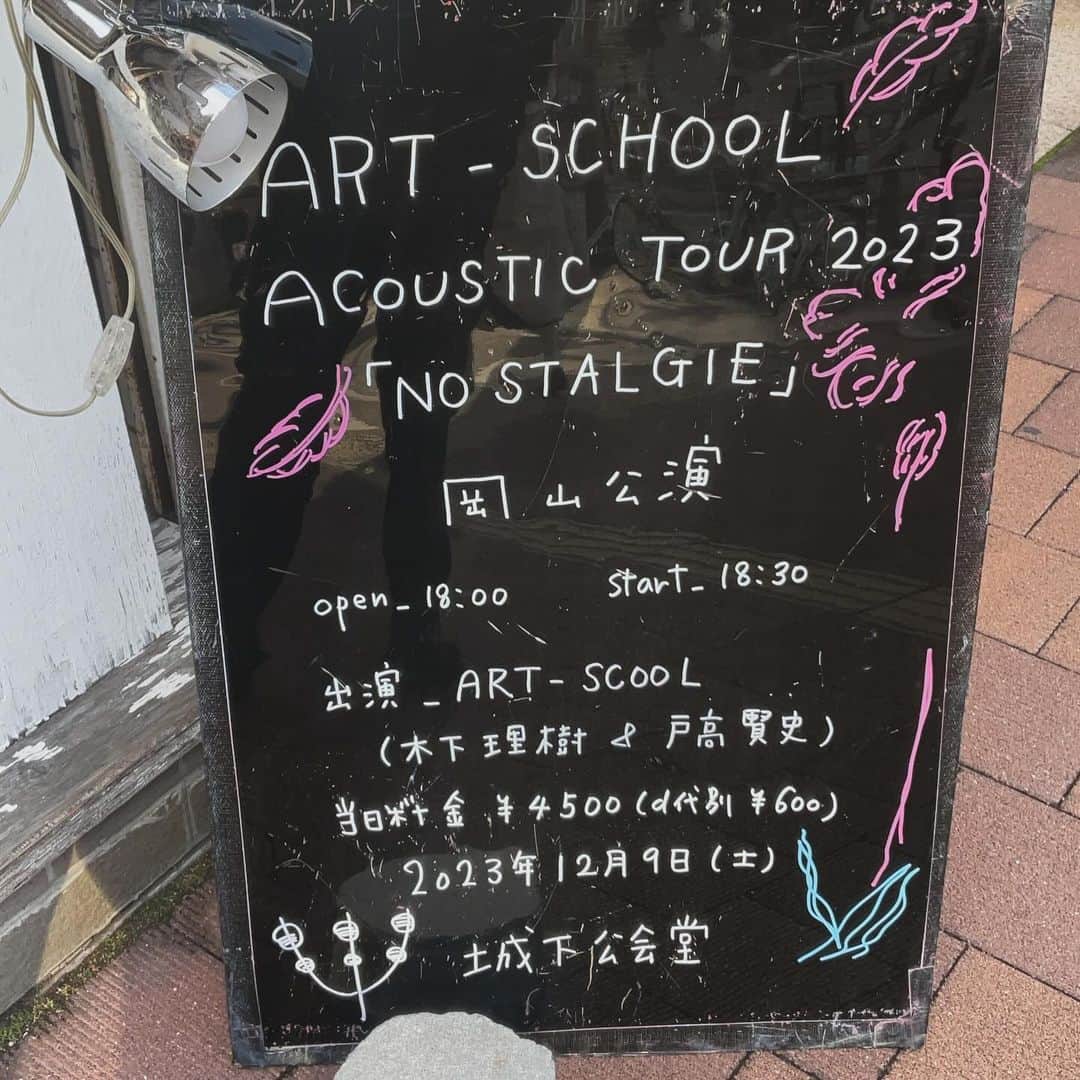 ART-SCHOOL
ACOUSTIC TOUR 2023
「NOSTALGIE」
岡山公演
open_18:00 start_18:30
出演_ART-SCOOL
(木下理樹 & 戸高賢史)
当日料金 ¥4500(d代別¥600)
2023年12月9日(土)
城下公会堂